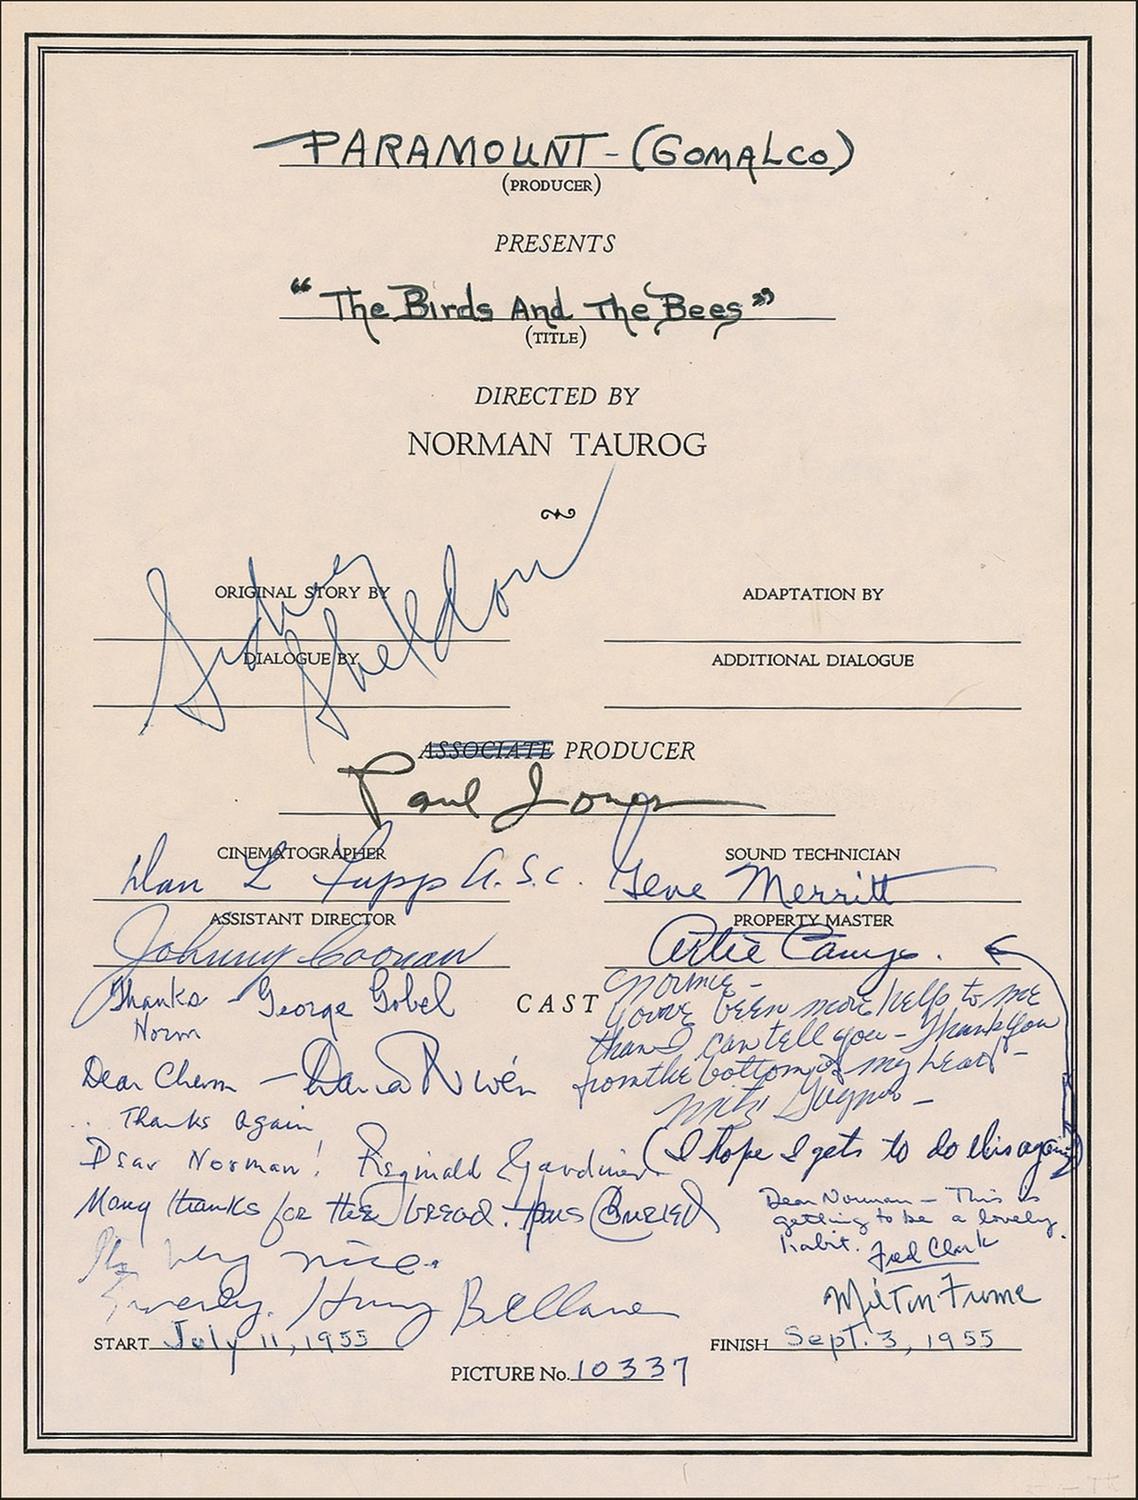 PARAMOUNT - (GOMALCO)
(PRODUCER)
PRESENTS
"The Birds And The Bees"
(TITLE)
DIRECTED BY
NORMAN TAUROG
Sidney
ORIGINAL STORY BY
ADAPTATION BY
Sheldon
DIALOGUE BY
ADDITIONAL DIALOGUE
ASSOCIATE PRODUCER
Paul Jones
CINEMATOGRAPHER
SOUND TECHNICIAN
L A.S.C.
Gene Merritt
ASSISTANT DIRECTOR
PROPERTY MASTER
Johnny Coonan
Artie Camp.
CAST
Thanks - George Gobel
Norm
Norman -
You've been more help to me
than I can tell you - Thank you
from the bottom of my heart -
Mitzi Gaynor -
(I hope I gets to do this again)
Dear Cherm - David Niven
Thanks again
Dear Norman! Reginald Gardiner
Many thanks for the bread. Hans Conried
Dear Norman - This is
getting to be a lovely
habit. Fred Clark
very nice.
Harry Bellaver
Milton Frome
START July 11, 1955
FINISH Sept. 3, 1955
PICTURE No. 10337